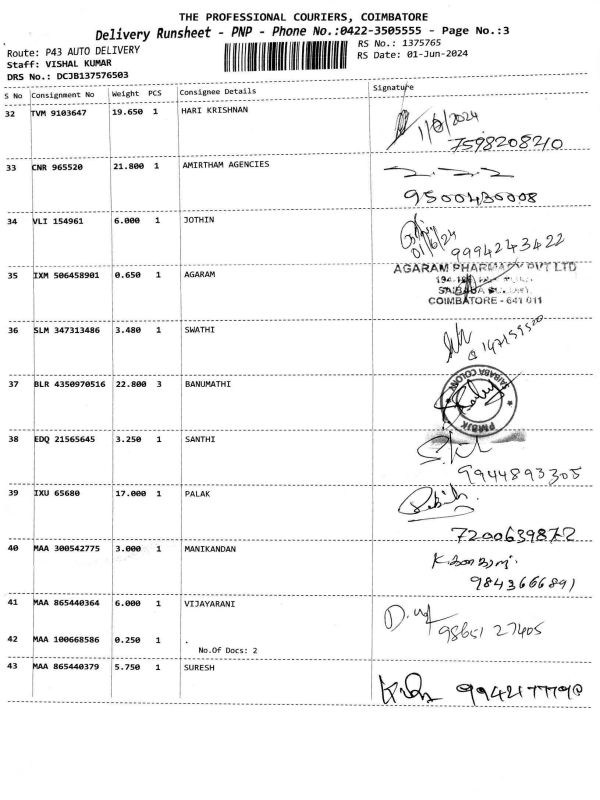 THE PROFESSIONAL COURIERS, COIMBATORE
Delivery Runsheet - PNP - Phone No.:0422-3505555 - Page No.:3
Route: P43 AUTO DELIVERY RS No.: 1375765
Staff: VISHAL KUMAR RS Date: 01-Jun-2024
DRS No.: DCJB137576503
S No Consignment No Weight PCS Consignee Details Signature
32 TVM 9103647 19.650 1 HARI KRISHNAN
1/6/2024
7598208210
33 CNR 965520 21.800 1 AMIRTHAM AGENCIES
9500430008
34 VLI 154961 6.000 1 JOTHIN
01/6/24
9994243422
35 IXM 506458901 0.650 1 AGARAM
AGARAM PHARMACY PVT LTD
SAIBABA
COIMBATORE - 641 011
36 SLM 347313486 3.480 1 SWATHI
37 BLR 4350970516 22.800 3 BANUMATHI
SAIBABA COLONY
PMBJK
38 EDQ 21565645 3.250 1 SANTHI
9944893305
39 IXU 65680 17.000 1 PALAK
7200639872
40 MAA 300542775 3.000 1 MANIKANDAN
9843666891
41 MAA 865440364 6.000 1 VIJAYARANI
98651 27405
42 MAA 100668586 0.250 1 .
No.Of Docs: 2
43 MAA 865440379 5.750 1 SURESH